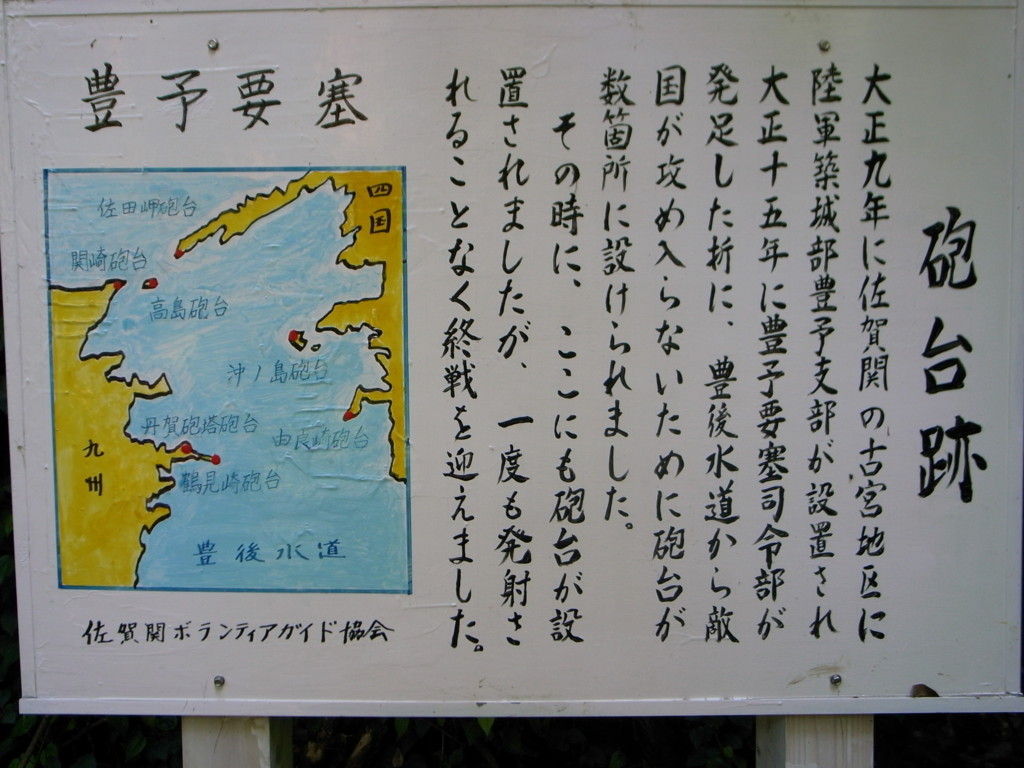 砲台跡
大正九年に佐賀関の古宮地区に
陸軍築城部豊予支部が設置され
大正十五年に豊予要塞司令部が
発足した折に、豊後水道から敵
国が攻め入らないために砲台が
数箇所に設けられました。
その時に、ここにも砲台が設
置されましたが、一度も発射さ
れることなく終戦を迎えました。
豊予要塞
四国
佐田岬砲台
関崎砲台
高島砲台
沖ノ島砲台
丹賀砲塔砲台
由良崎砲台
鶴見崎砲台
九州
豊後水道
佐賀関ボランティアガイド協会